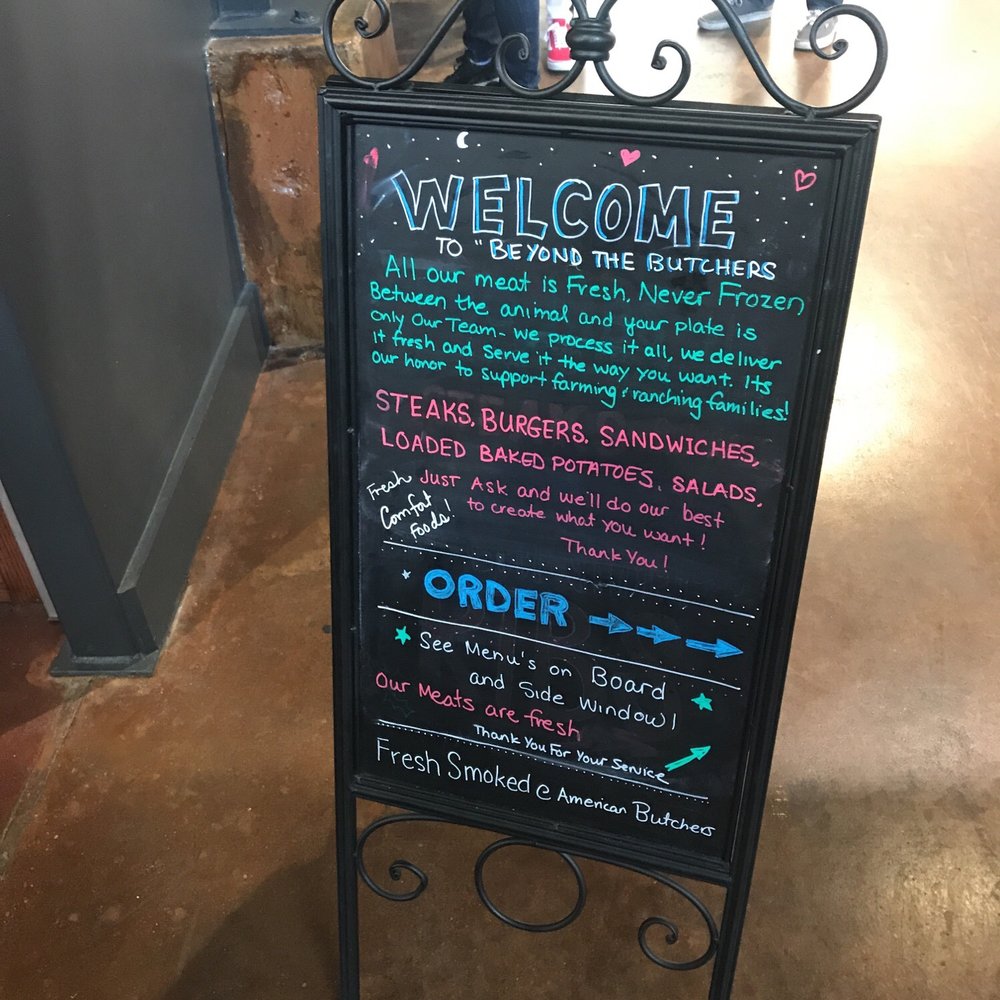 WELCOME
TO "BEYOND THE BUTCHERS
All our meat is Fresh, Never Frozen,
Between the animal and your plate is
only Our Team - we process it all, we deliver
it fresh and serve it the way you want. Its
our honor to support farming & ranching families!
STEAKS, BURGERS, SANDWICHES,
LOADED BAKED POTATOES, SALADS,
Fresh Comfat Foods!
JUST ASK and we'll do our best
to create what you want!
Thank You!
ORDER
See Menu's on Board
and Side Window!
Our Meats are fresh
Thank You For Your Service
Fresh Smoked @ American Butchers